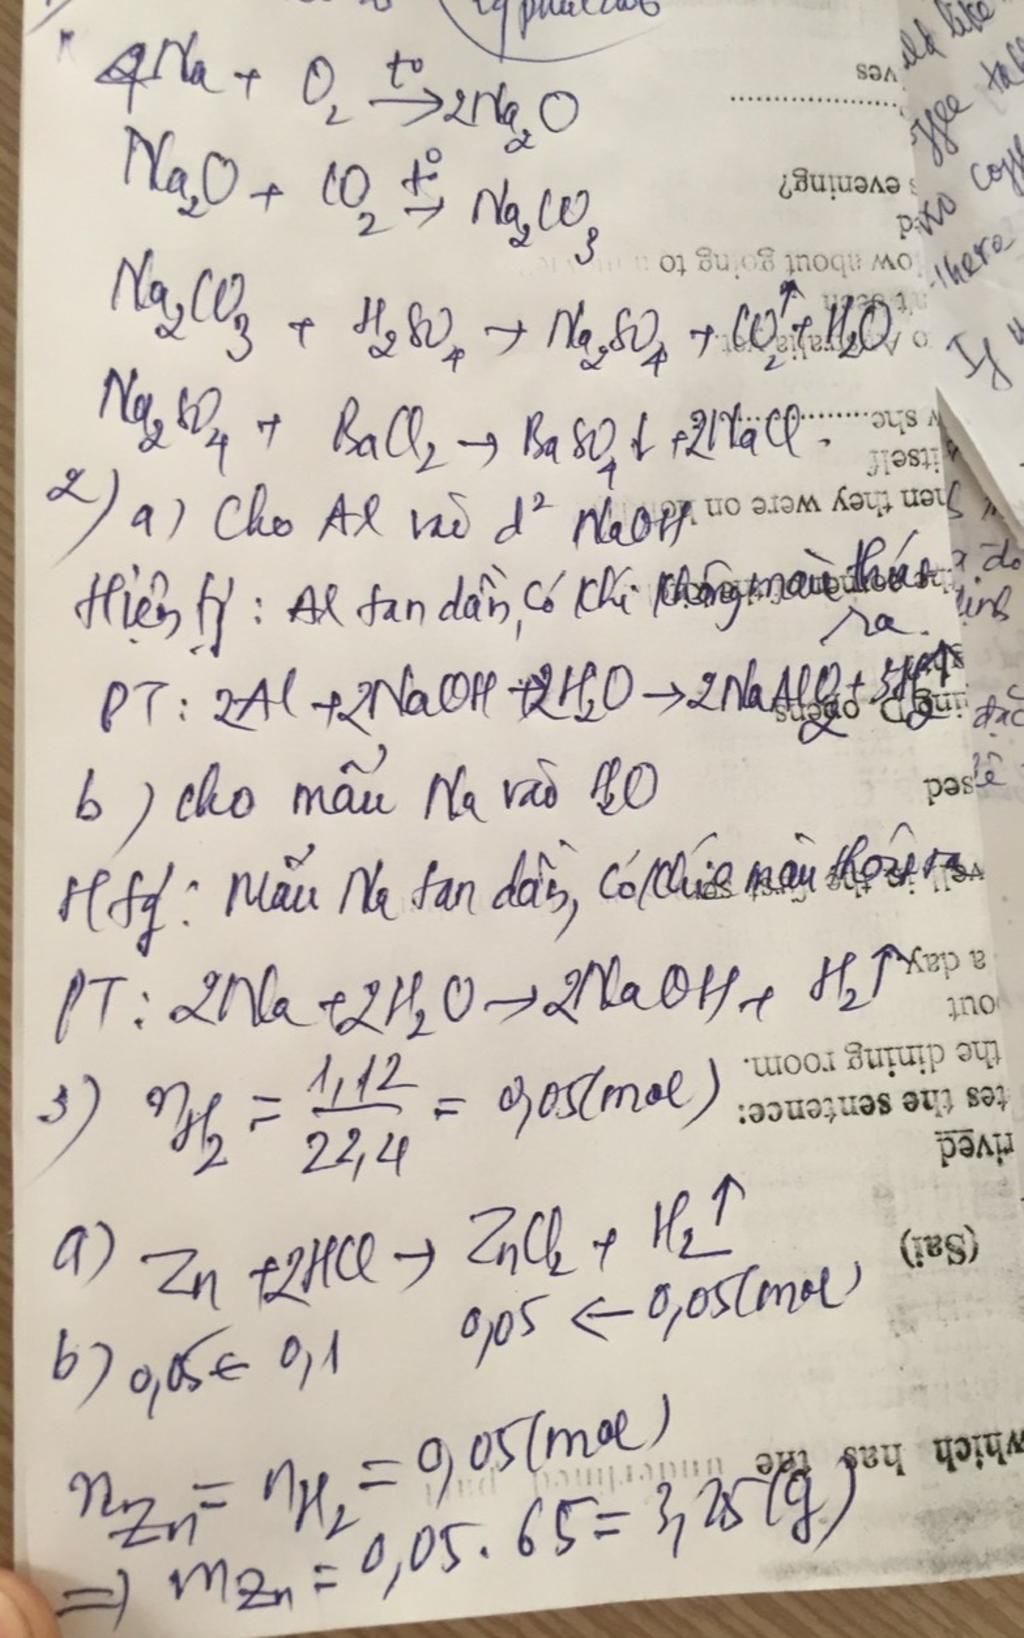 4Na + O₂ →t° 2Na₂O
Na₂O + CO₂ →t° Na₂CO₃
Na₂CO₃ + H₂SO₄ → Na₂SO₄ + CO₂↑ + H₂O
Na₂SO₄ + BaCl₂ → BaSO₄↓ + 2NaCl.
2) a) Cho Al vào d² NaOH
Hiện tg : Al tan dần, có khí không màu thoát
ra.
PT : 2Al + 2NaOH + 2H₂O → 2NaAlO₂ + 3H₂↑
b) cho mẫu Na vào H₂O
H tg : Mẫu Na tan dần, có khí màu thoát ra
PT : 2Na + 2H₂O → 2NaOH + H₂↑
3) nH₂ = 1,12 / 22,4 = 0,05 (mol)
a) Zn + 2HCl → ZnCl₂ + H₂↑
b) 0,05 ← 0,1 0,05 ← 0,05 (mol)
nZn = nH₂ = 0,05 (mol)
=) mZn = 0,05 . 65 = 3,25 (g)
ves
s evening?
ow about going to a
w she
itself
hen they were on
opens
sed
a day
out
the dining room.
tes the sentence:
rived
(Sai)
which has the underlined
uld like
coff
there
If